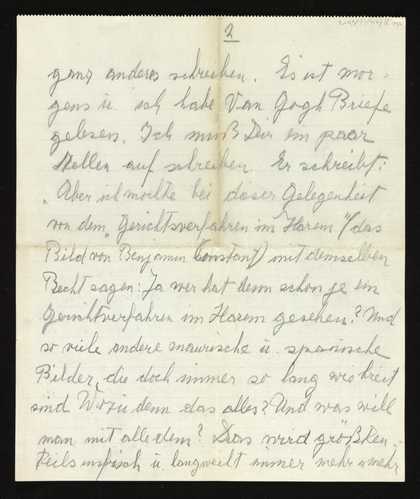 2
ganz anderes schreiben. Es ist mor-
gens u. ich habe Van Gogh Briefe
gelesen. Ich muß Dir ein paar
Stellen auf schreiben Er schreibt:
„Aber ich möchte bei dieser Gelegenheit
von dem „Gerichtsverfahren im Harem" (das
Bild von Benjamin Constant) mit demselben
Recht sagen: Ja wer hat denn schon je ein
Gerichtverfahren im Harem gesehen? Und
so viele andere maurische u. spanische
Bilder, die doch immer so lang wie breit
sind Wozu denn das alles? Und was will
man mit alle dem? Das wird größten-
teils u langweilt immer mehr u mehr